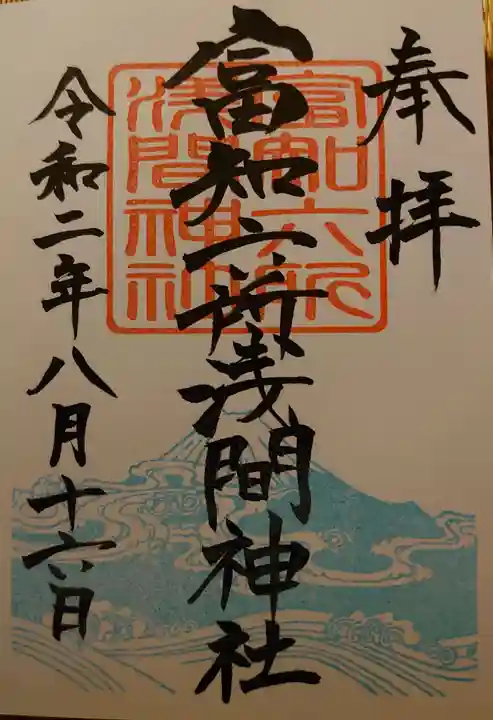 奉拝
富知六所浅間神社
富知六所
浅間神社
令和二年八月十六日